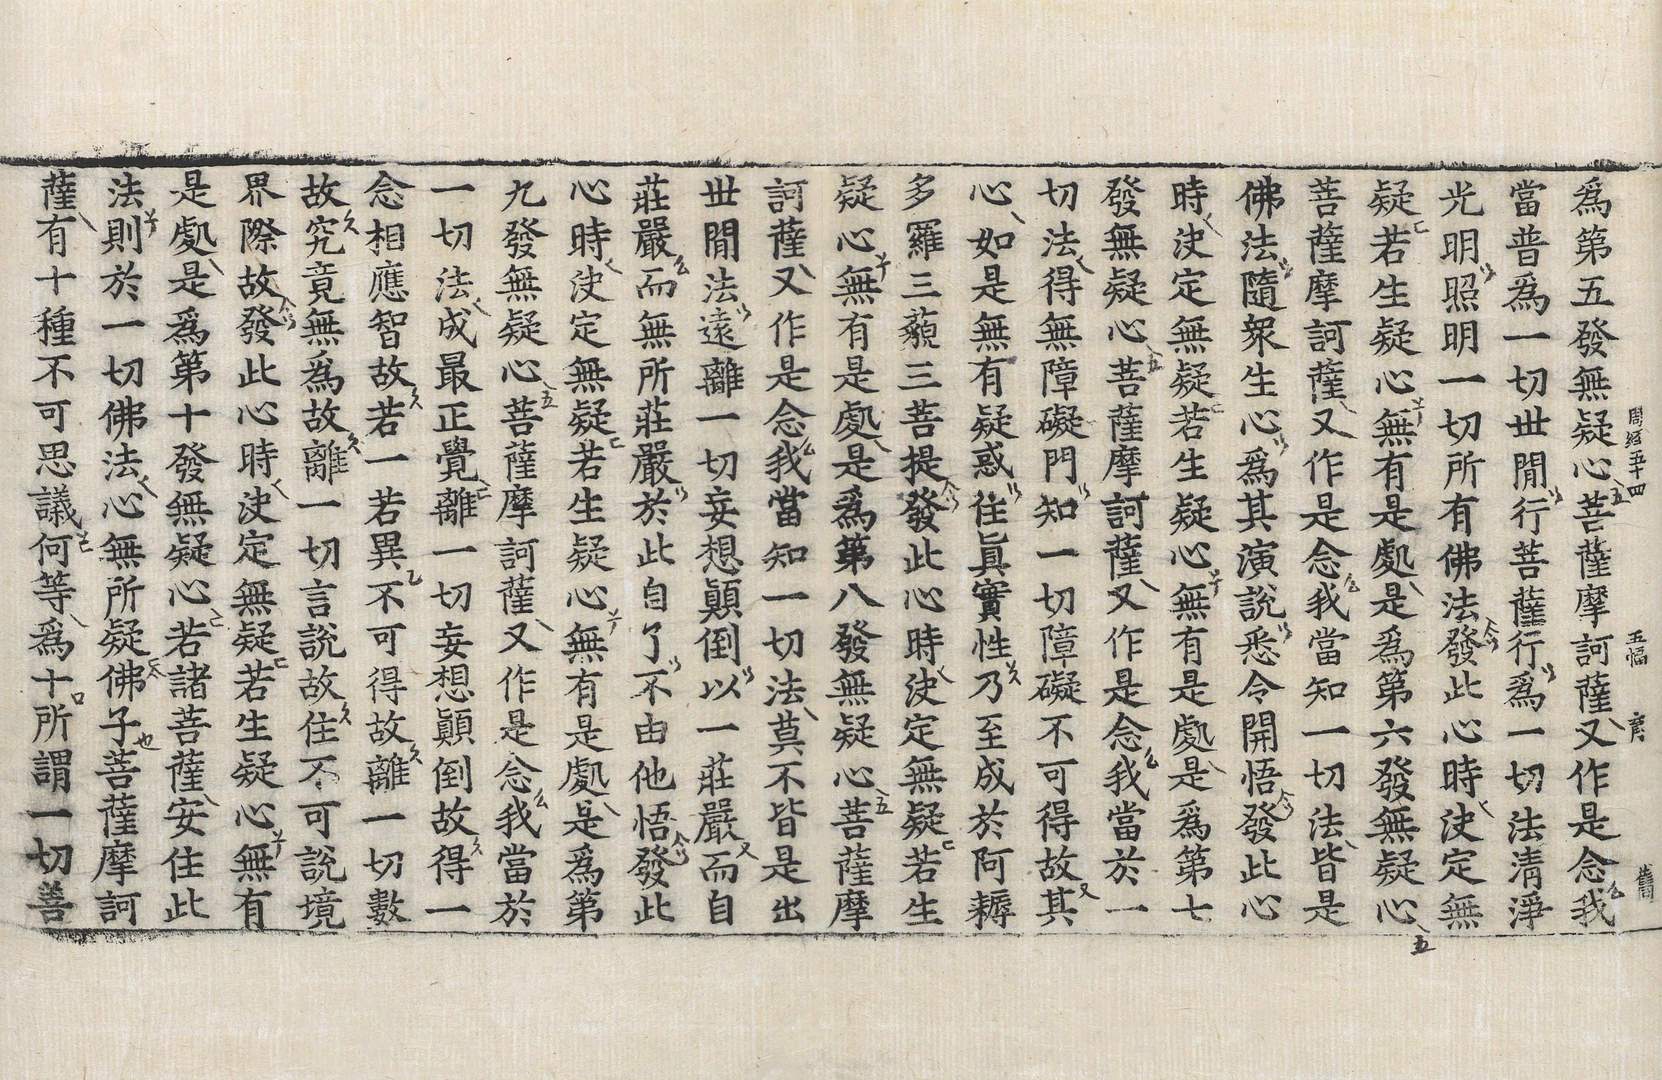 周經五十四　五幅　舊
爲第五發無疑心菩薩摩訶薩又作是念我
當普爲一切世間行菩薩行爲一切法清淨
光明照明一切所有佛法發此心時決定無
疑若生疑心無有是處是爲第六發無疑心
菩薩摩訶薩又作是念我當知一切法皆是
佛法隨衆生心爲其演說悉令開悟發此心
時決定無疑若生疑心無有是處是爲第七
發無疑心菩薩摩訶薩又作是念我當於一
切法得無障礙門知一切障礙不可得故其
心如是無有疑惑住眞實性乃至成於阿耨
多羅三藐三菩提發此心時決定無疑若生
疑心無有是處是爲第八發無疑心菩薩摩
訶薩又作是念我當知一切法莫不皆是出
世間法遠離一切妄想顚倒以一莊嚴而自
莊嚴而無所莊嚴於此自了不由他悟發此
心時決定無疑若生疑心無有是處是爲第
九發無疑心菩薩摩訶薩又作是念我當於
一切法成最正覺離一切妄想顚倒故得一
念相應智故若一若異不可得故離一切數
故究竟無爲故離一切言說故住不可說境
界際故發此心時決定無疑若生疑心無有
是處是爲第十發無疑心若諸菩薩安住此
法則於一切佛法心無所疑佛子菩薩摩訶
薩有十種不可思議何等爲十所謂一切善